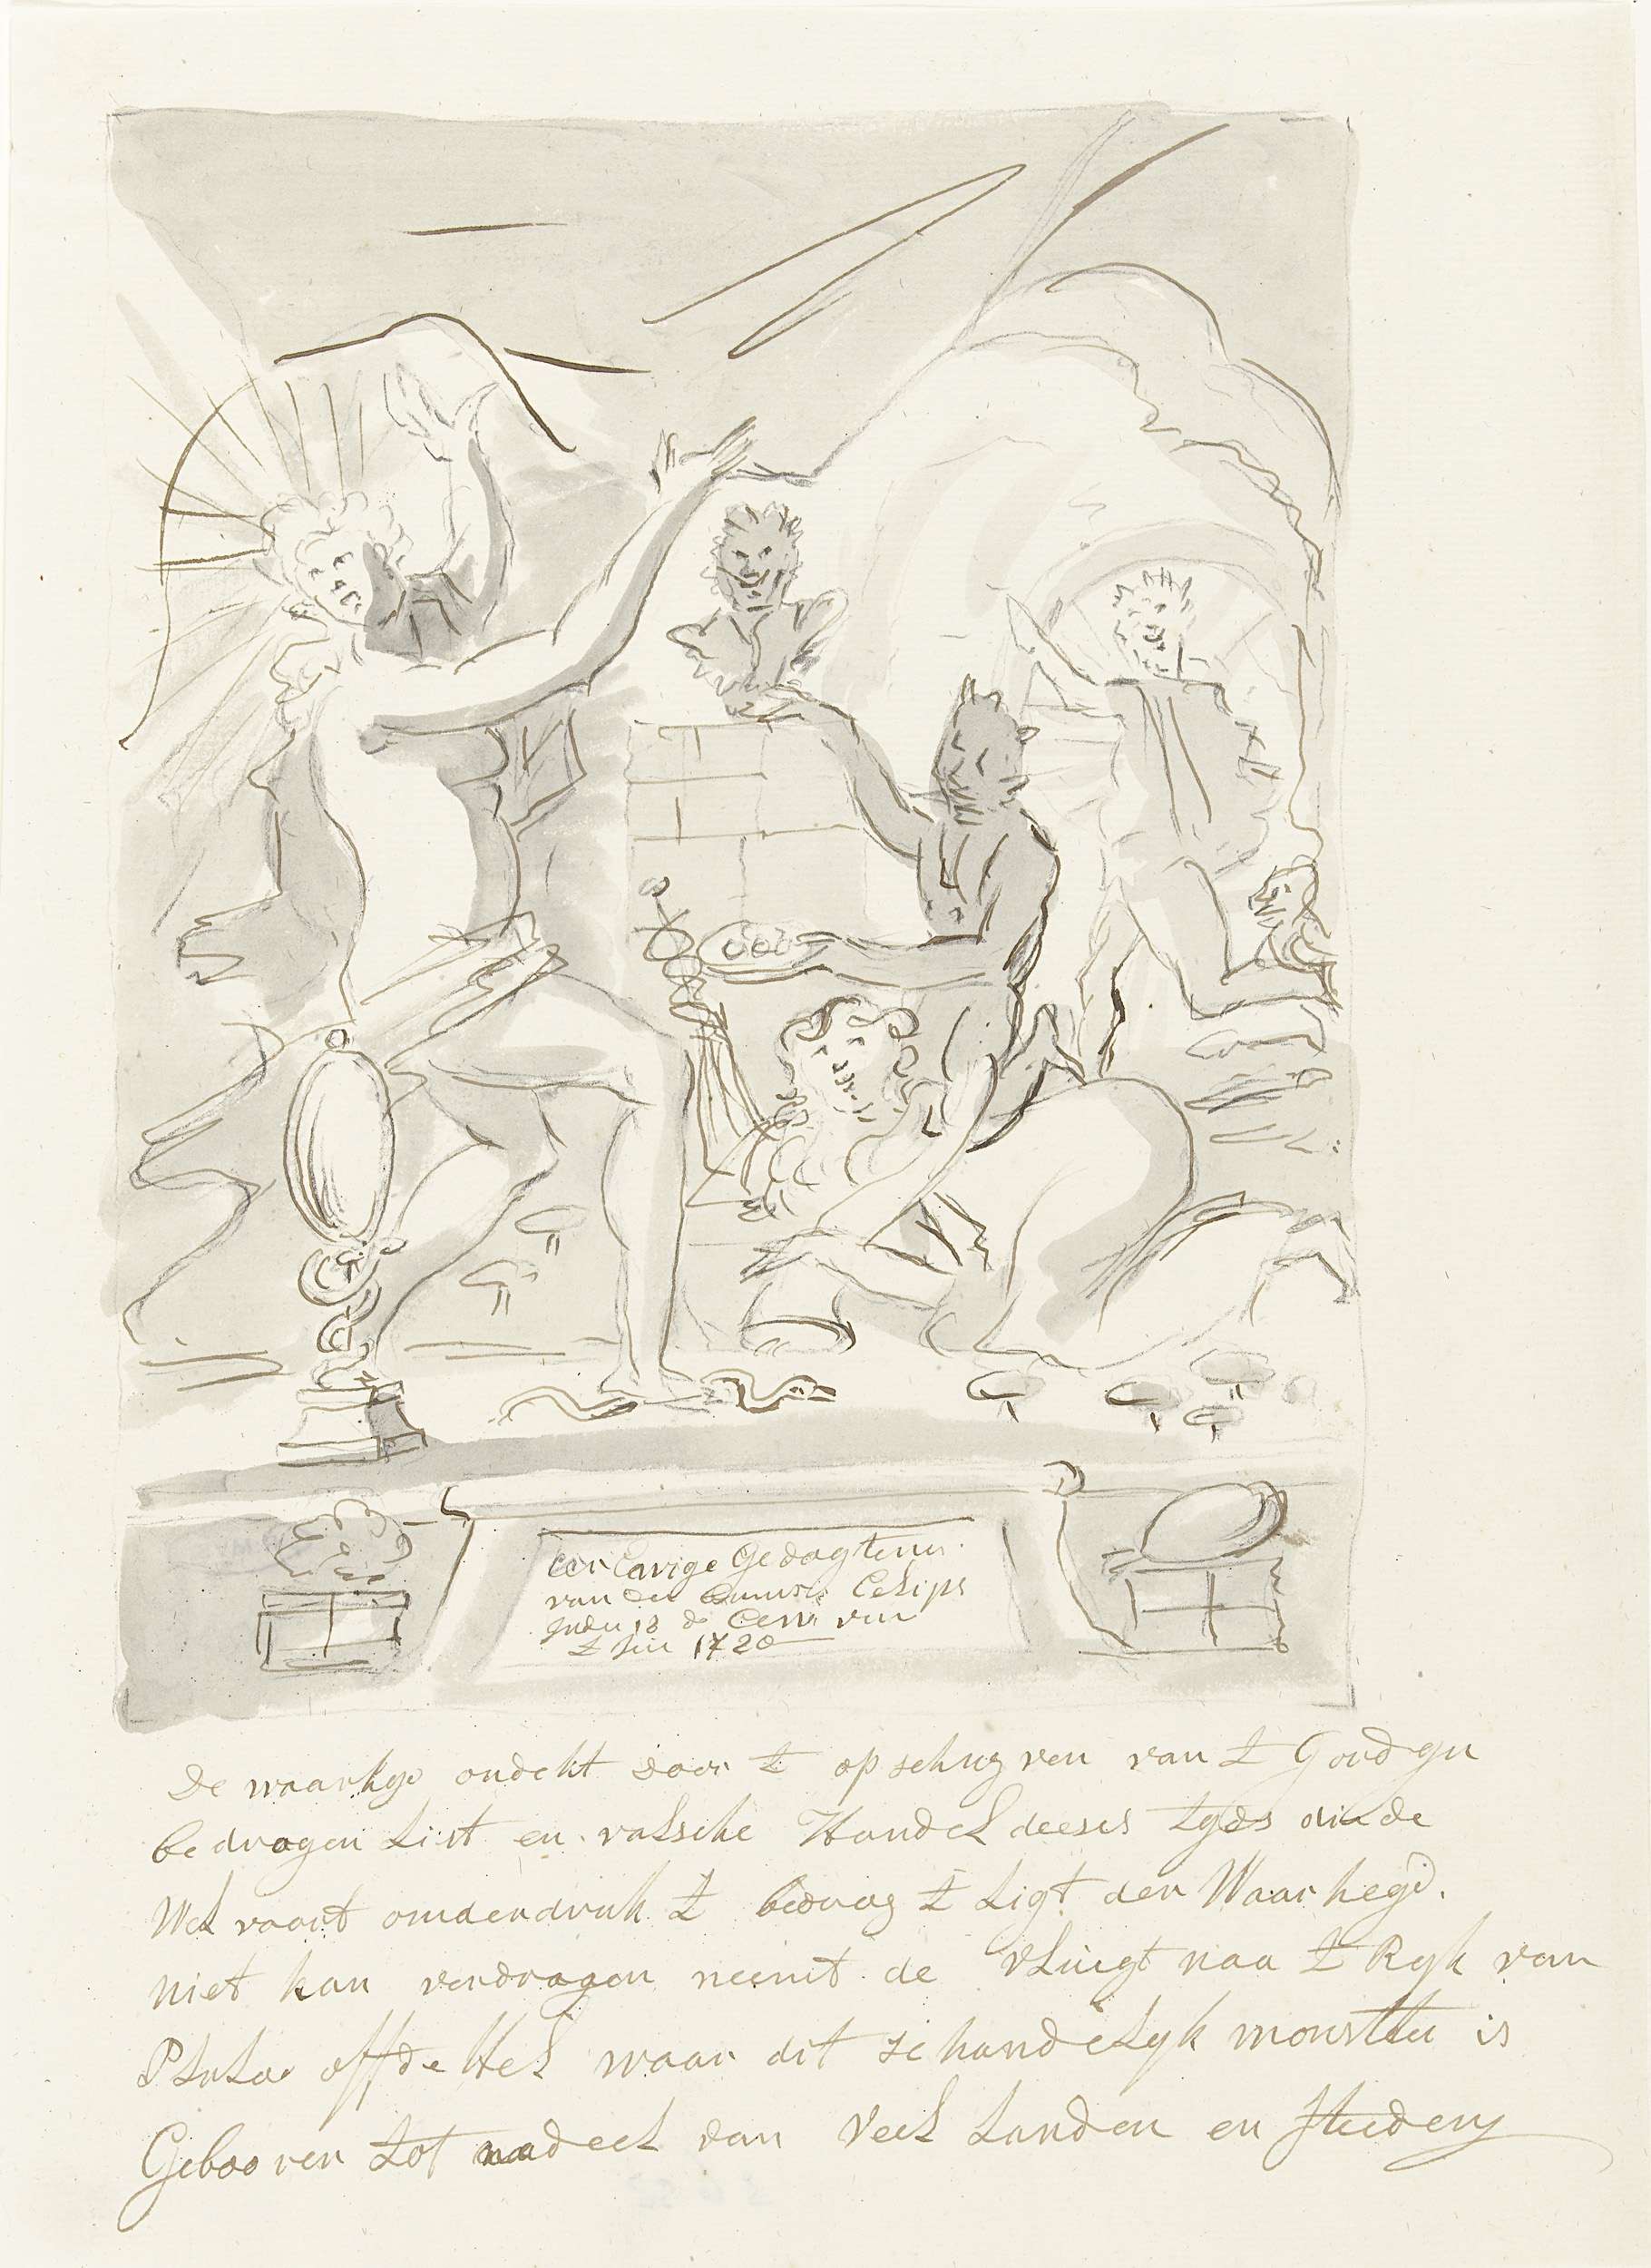 Eewige Gedagtenis
van der Eclips
18
1720
De waarhyd ondekt door t op schuyven van t Gordyn
bedrogen List en valsche Handel deeses tyds die de
Welvaart onderdruk t bedrog t Ligt der Waarheyd.
niet kan verdragen neemt de vlugt naa t Ryk van
Pluto off de Hel waar dit schandelyk monster is
Gebooren tot nadeel van Veel Landen en Steeden